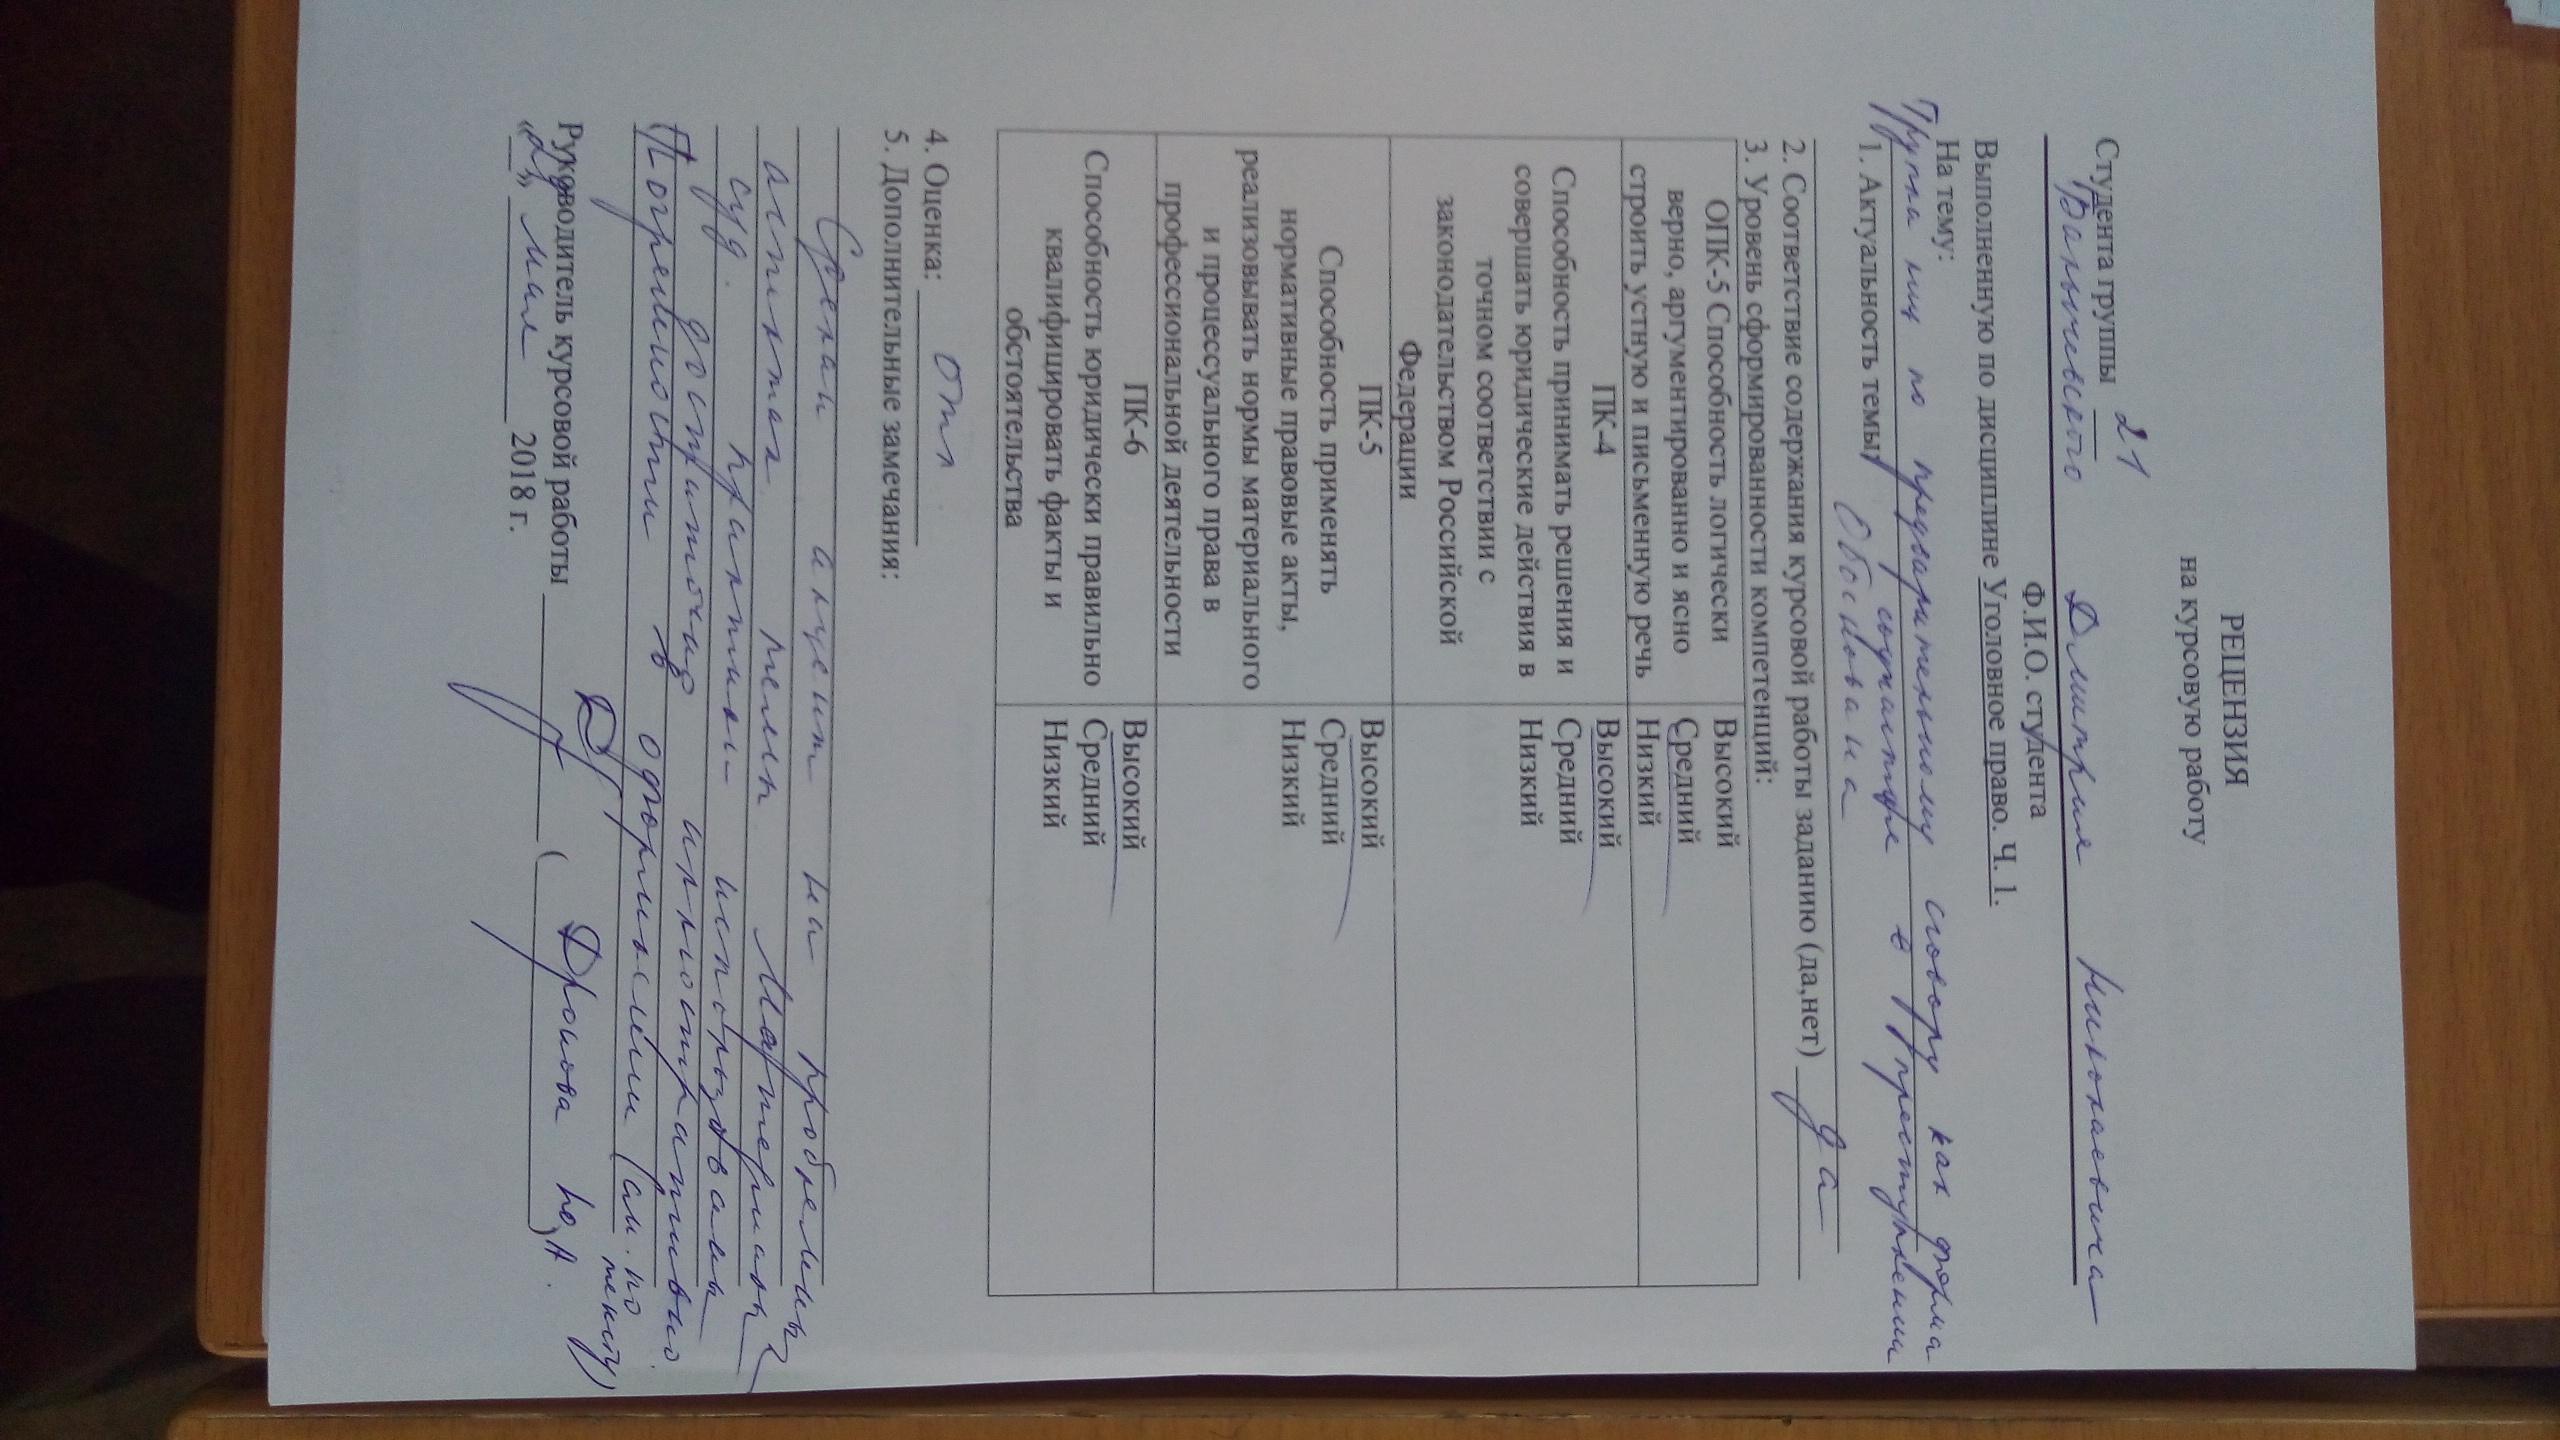 РЕЦЕНЗИЯ
на курсовую работу
Студента группы 21
Дмитрия Николаевича
Ф.И.О. студента
Выполненную по дисциплине Уголовное право. Ч. 1.
На тему:
Группа лиц по предварительному сговору как форма
соучастия в преступлении
1. Актуальность темы Обоснована
2. Соответствие содержания курсовой работы заданию (да,нет) да
3. Уровень сформированности компетенций:
ОПК-5 Способность логически
верно, аргументированно и ясно
строить устную и письменную речь
Высокий
Средний
Низкий
ПК-4
Способность принимать решения и
совершать юридические действия в
точном соответствии с
законодательством Российской
Федерации
Высокий
Средний
Низкий
ПК-5
Способность применять
нормативные правовые акты,
реализовывать нормы материального
и процессуального права в
профессиональной деятельности
Высокий
Средний
Низкий
ПК-6
Способность юридически правильно
квалифицировать факты и
обстоятельства
Высокий
Средний
Низкий
4. Оценка: отл
5. Дополнительные замечания:
Сделан акцент на проблемы
аспектах темы. Материалы
суд. практики использованы
достаточно иллюстративно.
Погрешности в оформлении (см. по
тексту)
Руководитель курсовой работы ( Дронова )
мая 2018 г.